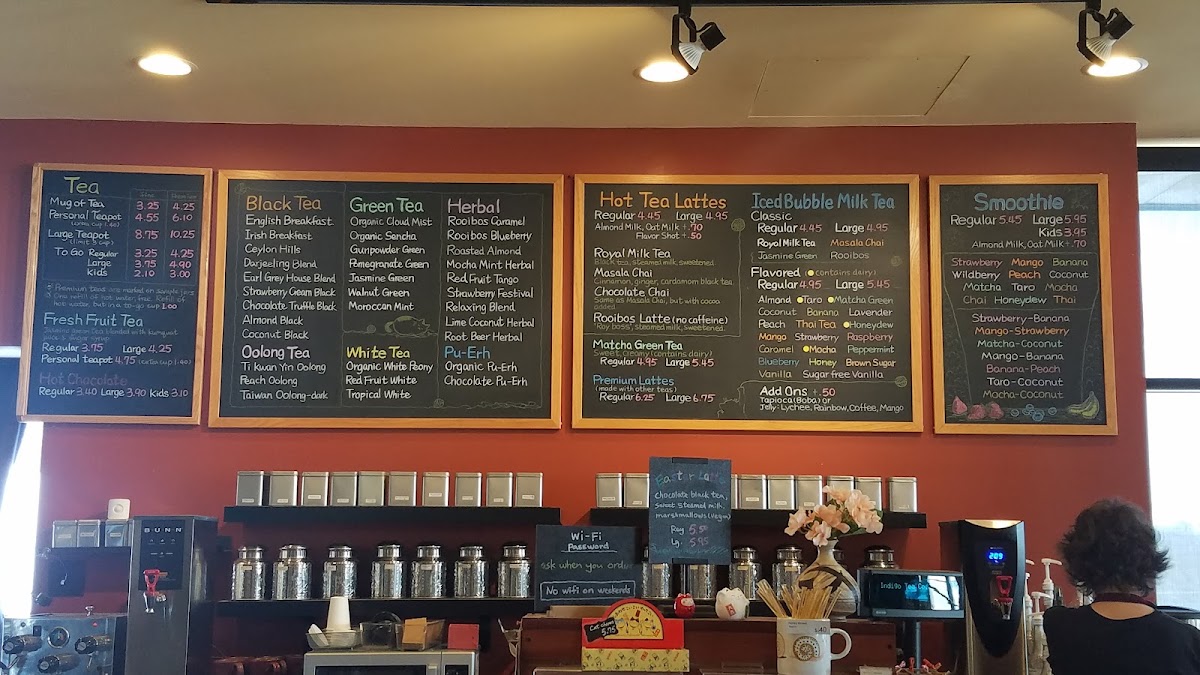 Tea
Mug of Tea 3.25 4.25
Personal Teapot 4.55 6.10
Large Teapot 8.75 10.25
To Go Regular 3.25 4.25
Large 3.75 4.90
Kids 2.10 3.00
Fresh Fruit Tea
Regular 3.75 Large 4.25
Personal teapot 4.75 (extra cup 1.60)
Hot Chocolate
Regular 3.40 Large 3.90 Kids 3.10
Black Tea
English Breakfast
Irish Breakfast
Ceylon Hills
Darjeeling Blend
Earl Grey House Blend
Strawberry Cream Black
Chocolate Truffle Black
Almond Black
Coconut Black
Oolong Tea
Ti Kwan Yin Oolong
Peach Oolong
Taiwan Oolong-dark
Green Tea
Organic Cloud Mist
Organic Sencha
Gunpowder Green
Pomegranate Green
Jasmine Green
Walnut Green
Moroccan Mint
White Tea
Organic White Peony
Red Fruit White
Tropical White
Herbal
Rooibos Caramel
Rooibos Blueberry
Roasted Almond
Mocha Mint Herbal
Red Fruit Tango
Strawberry Festival
Relaxing Blend
Lime Coconut Herbal
Root Beer Herbal
Pu-Erh
Organic Pu-Erh
Chocolate Pu-Erh
Hot Tea Lattes
Regular 4.45 Large 4.95
Almond Milk, Oat Milk +.70
Flavor Shot +.50
Royal Milk Tea
Black tea, steamed milk, sweetened
Masala Chai
Cinnamon, ginger, cardamom black tea
Chocolate Chai
Same as Masala Chai, but with cocoa
added
Rooibos Latte (no caffeine)
"Roy boss", steamed milk, sweetened
Matcha Green Tea
Sweet, creamy (contains dairy)
Regular 4.95 Large 5.45
Premium Lattes
(made with other teas)
Regular 6.25 Large 6.75
Iced Bubble Milk Tea
Classic
Regular 4.45 Large 4.95
Royal Milk Tea Masala Chai
Jasmine Green Rooibos
Flavored (contains dairy)
Regular 4.95 Large 5.45
Almond Taro Matcha Green
Coconut Banana Lavender
Peach Thai Tea Honeydew
Mango Strawberry Raspberry
Caramel Mocha Peppermint
Blueberry Honey Brown Sugar
Vanilla Sugar free Vanilla
Add Ons +.50
Tapioca (Boba) or
Jelly: Lychee, Rainbow, Coffee, Mango
Smoothie
Regular 5.45 Large 5.95
Kids 3.95
Almond Milk, Oat Milk +.70
Strawberry Mango Banana
Wildberry Peach Coconut
Matcha Taro Mocha
Chai Honeydew Thai
Strawberry-Banana
Mango-Strawberry
Matcha-Coconut
Mango-Banana
Banana-Peach
Taro-Coconut
Mocha-Coconut
Easter Latte
Chocolate black tea,
sweet steamed milk,
marshmallows (vegan)
Reg 5.50
Lg 5.95
Wi-Fi
Password
ask when you order
No wifi on weekends
BUNN
209
Indigo Tea
5.75